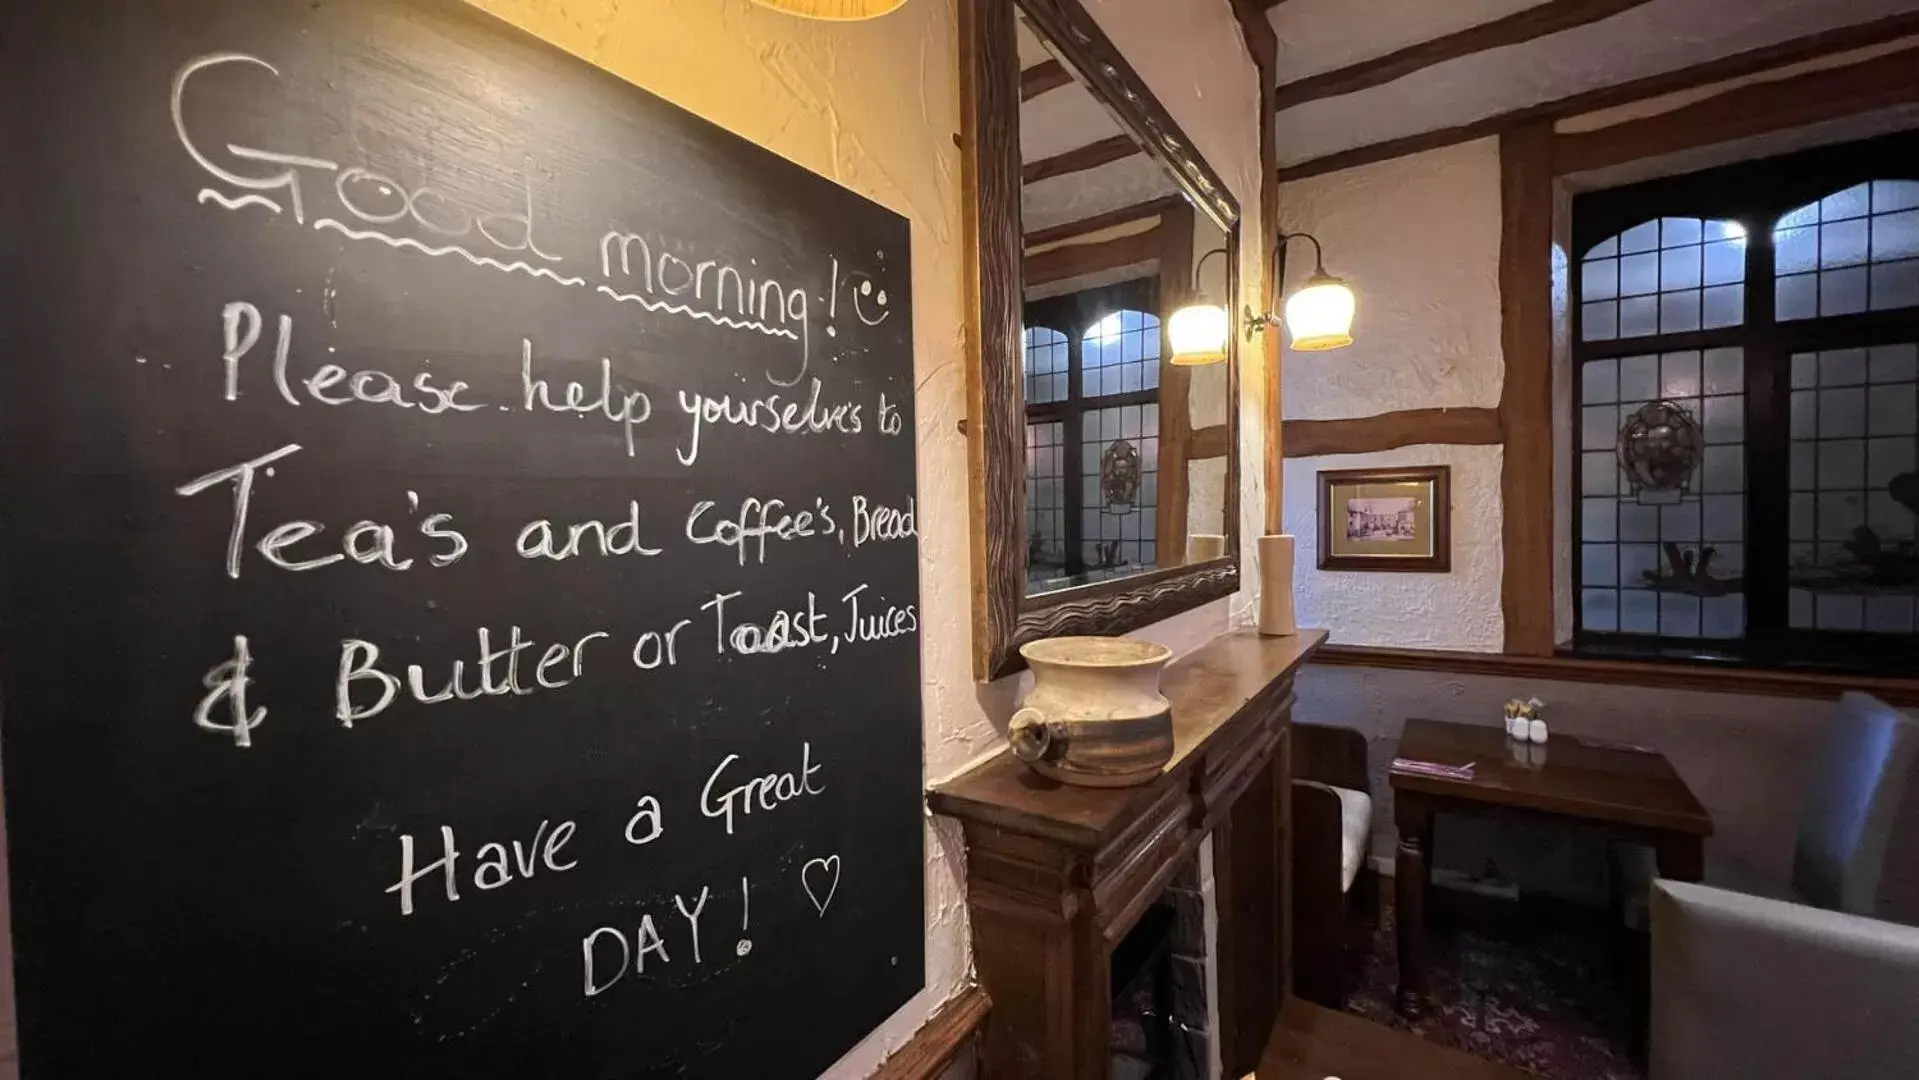 Good morning!
Please help yourselves to
Tea's and Coffee's, Bread
& Butter or Toast, Juices
Have a Great
DAY!